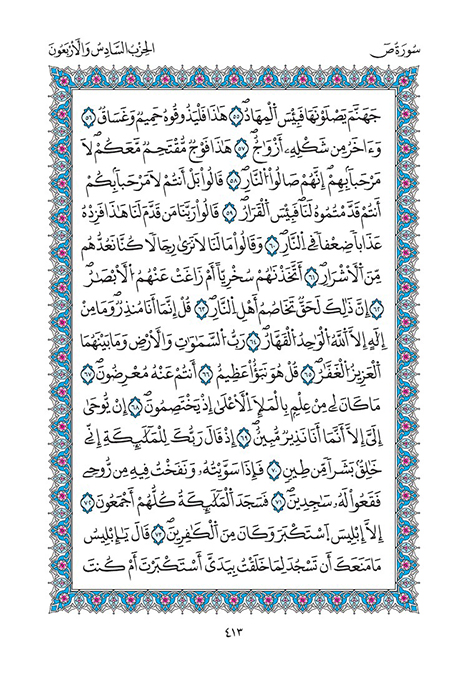 سُورَةُ صٓ
الحِزْبُ السَّادِسُ وَالأَرْبَعُونَ
جَهَنَّمَ يَصْلَوْنَهَا فَبِئْسَ ٱلْمِهَادُ ٥٥ هَٰذَا فَلْيَذُوقُوهُ حَمِيمٌ وَغَسَاقٌ ٥٦
وَءَاخَرُ مِن شَكْلِهِۦ أَزْوَٰجٌ ٥٧ هَٰذَا فَوْجٌ مُّقْتَحِمٌ مَّعَكُمْ لَا
مَرْحَبًۢا بِهِمْ إِنَّهُمْ صَالُوا۟ ٱلنَّارِ ٥٨ قَالُوا۟ بَلْ أَنتُمْ لَا مَرْحَبًۢا بِكُمْ
أَنتُمْ قَدَّمْتُمُوهُ لَنَا فَبِئْسَ ٱلْقَرَارُ ٥٩ قَالُوا۟ رَبَّنَا مَن قَدَّمَ لَنَا هَٰذَا فَزِدْهُ
عَذَابًا ضِعْفًا فِى ٱلنَّارِ ٦٠ وَقَالُوا۟ مَا لَنَا لَا نَرَىٰ رِجَالًا كُنَّا نَعُدُّهُم
مِّنَ ٱلْأَشْرَارِ ٦١ أَتَّخَذْنَٰهُمْ سُخْرِيًّا أَمْ زَاغَتْ عَنْهُمُ ٱلْأَبْصَٰرُ
٦٢ إِنَّ ذَٰلِكَ لَحَقٌّ تَخَاصُمُ أَهْلِ ٱلنَّارِ ٦٣ قُلْ إِنَّمَا أَنَا مُنذِرٌ وَمَا مِنْ
إِلَٰهٍ إِلَّا ٱللَّهُ ٱلْوَٰحِدُ ٱلْقَهَّارُ ٦٤ رَبُّ ٱلسَّمَٰوَٰتِ وَٱلْأَرْضِ وَمَا بَيْنَهُمَا
ٱلْعَزِيزُ ٱلْغَفَّٰرُ ٦٥ قُلْ هُوَ نَبَؤٌا۟ عَظِيمٌ ٦٦ أَنتُمْ عَنْهُ مُعْرِضُونَ ٦٧
مَا كَانَ لِى مِنْ عِلْمٍۭ بِٱلْمَلَإِ ٱلْأَعْلَىٰ إِذْ يَخْتَصِمُونَ ٦٨ إِن يُوحَىٰ
إِلَىَّ إِلَّا أَنَّمَا أَنَا نَذِيرٌ مُّبِينٌ ٦٩ إِذْ قَالَ رَبُّكَ لِلْمَلَٰٓئِكَةِ إِنِّى
خَٰلِقٌۢ بَشَرًا مِّن طِينٍ ٧٠ فَإِذَا سَوَّيْتُهُۥ وَنَفَخْتُ فِيهِ مِن رُّوحِى
فَقَعُوا۟ لَهُۥ سَٰجِدِينَ ٧١ فَسَجَدَ ٱلْمَلَٰٓئِكَةُ كُلُّهُمْ أَجْمَعُونَ ٧٢
إِلَّا إِبْلِيسَ ٱسْتَكْبَرَ وَكَانَ مِنَ ٱلْكَٰفِرِينَ ٧٣ قَالَ يَٰٓإِبْلِيسُ
مَا مَنَعَكَ أَن تَسْجُدَ لِمَا خَلَقْتُ بِيَدَىَّ أَسْتَكْبَرْتَ أَمْ كُنتَ
٤١٣